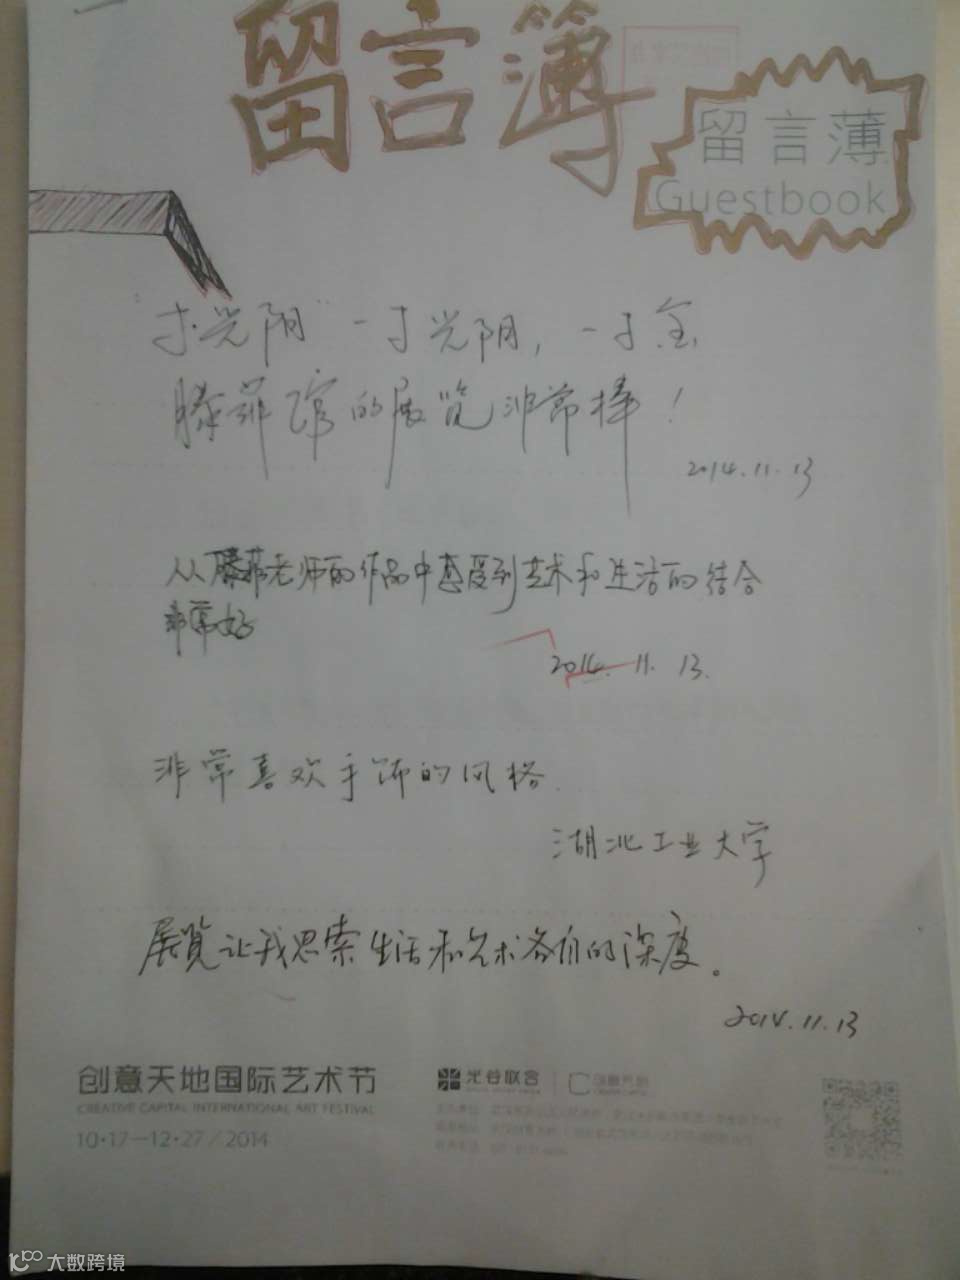 留言簿
留言薄
Guestbook
"寸光阴" 一寸光阴，一寸金
滕菲馆的展览非常棒！
2014.11.13
从滕菲老师的作品中感受到艺术和生活的结合
非常好
2014.11.13.
非常喜欢手饰的风格.
湖北工业大学
展览让我思索生活和艺术各自的深度。
2014.11.13
创意天地国际艺术节
CREATIVE CAPITAL INTERNATIONAL ART FESTIVAL
10·17—12·27/2014
光谷联合
大数跨境